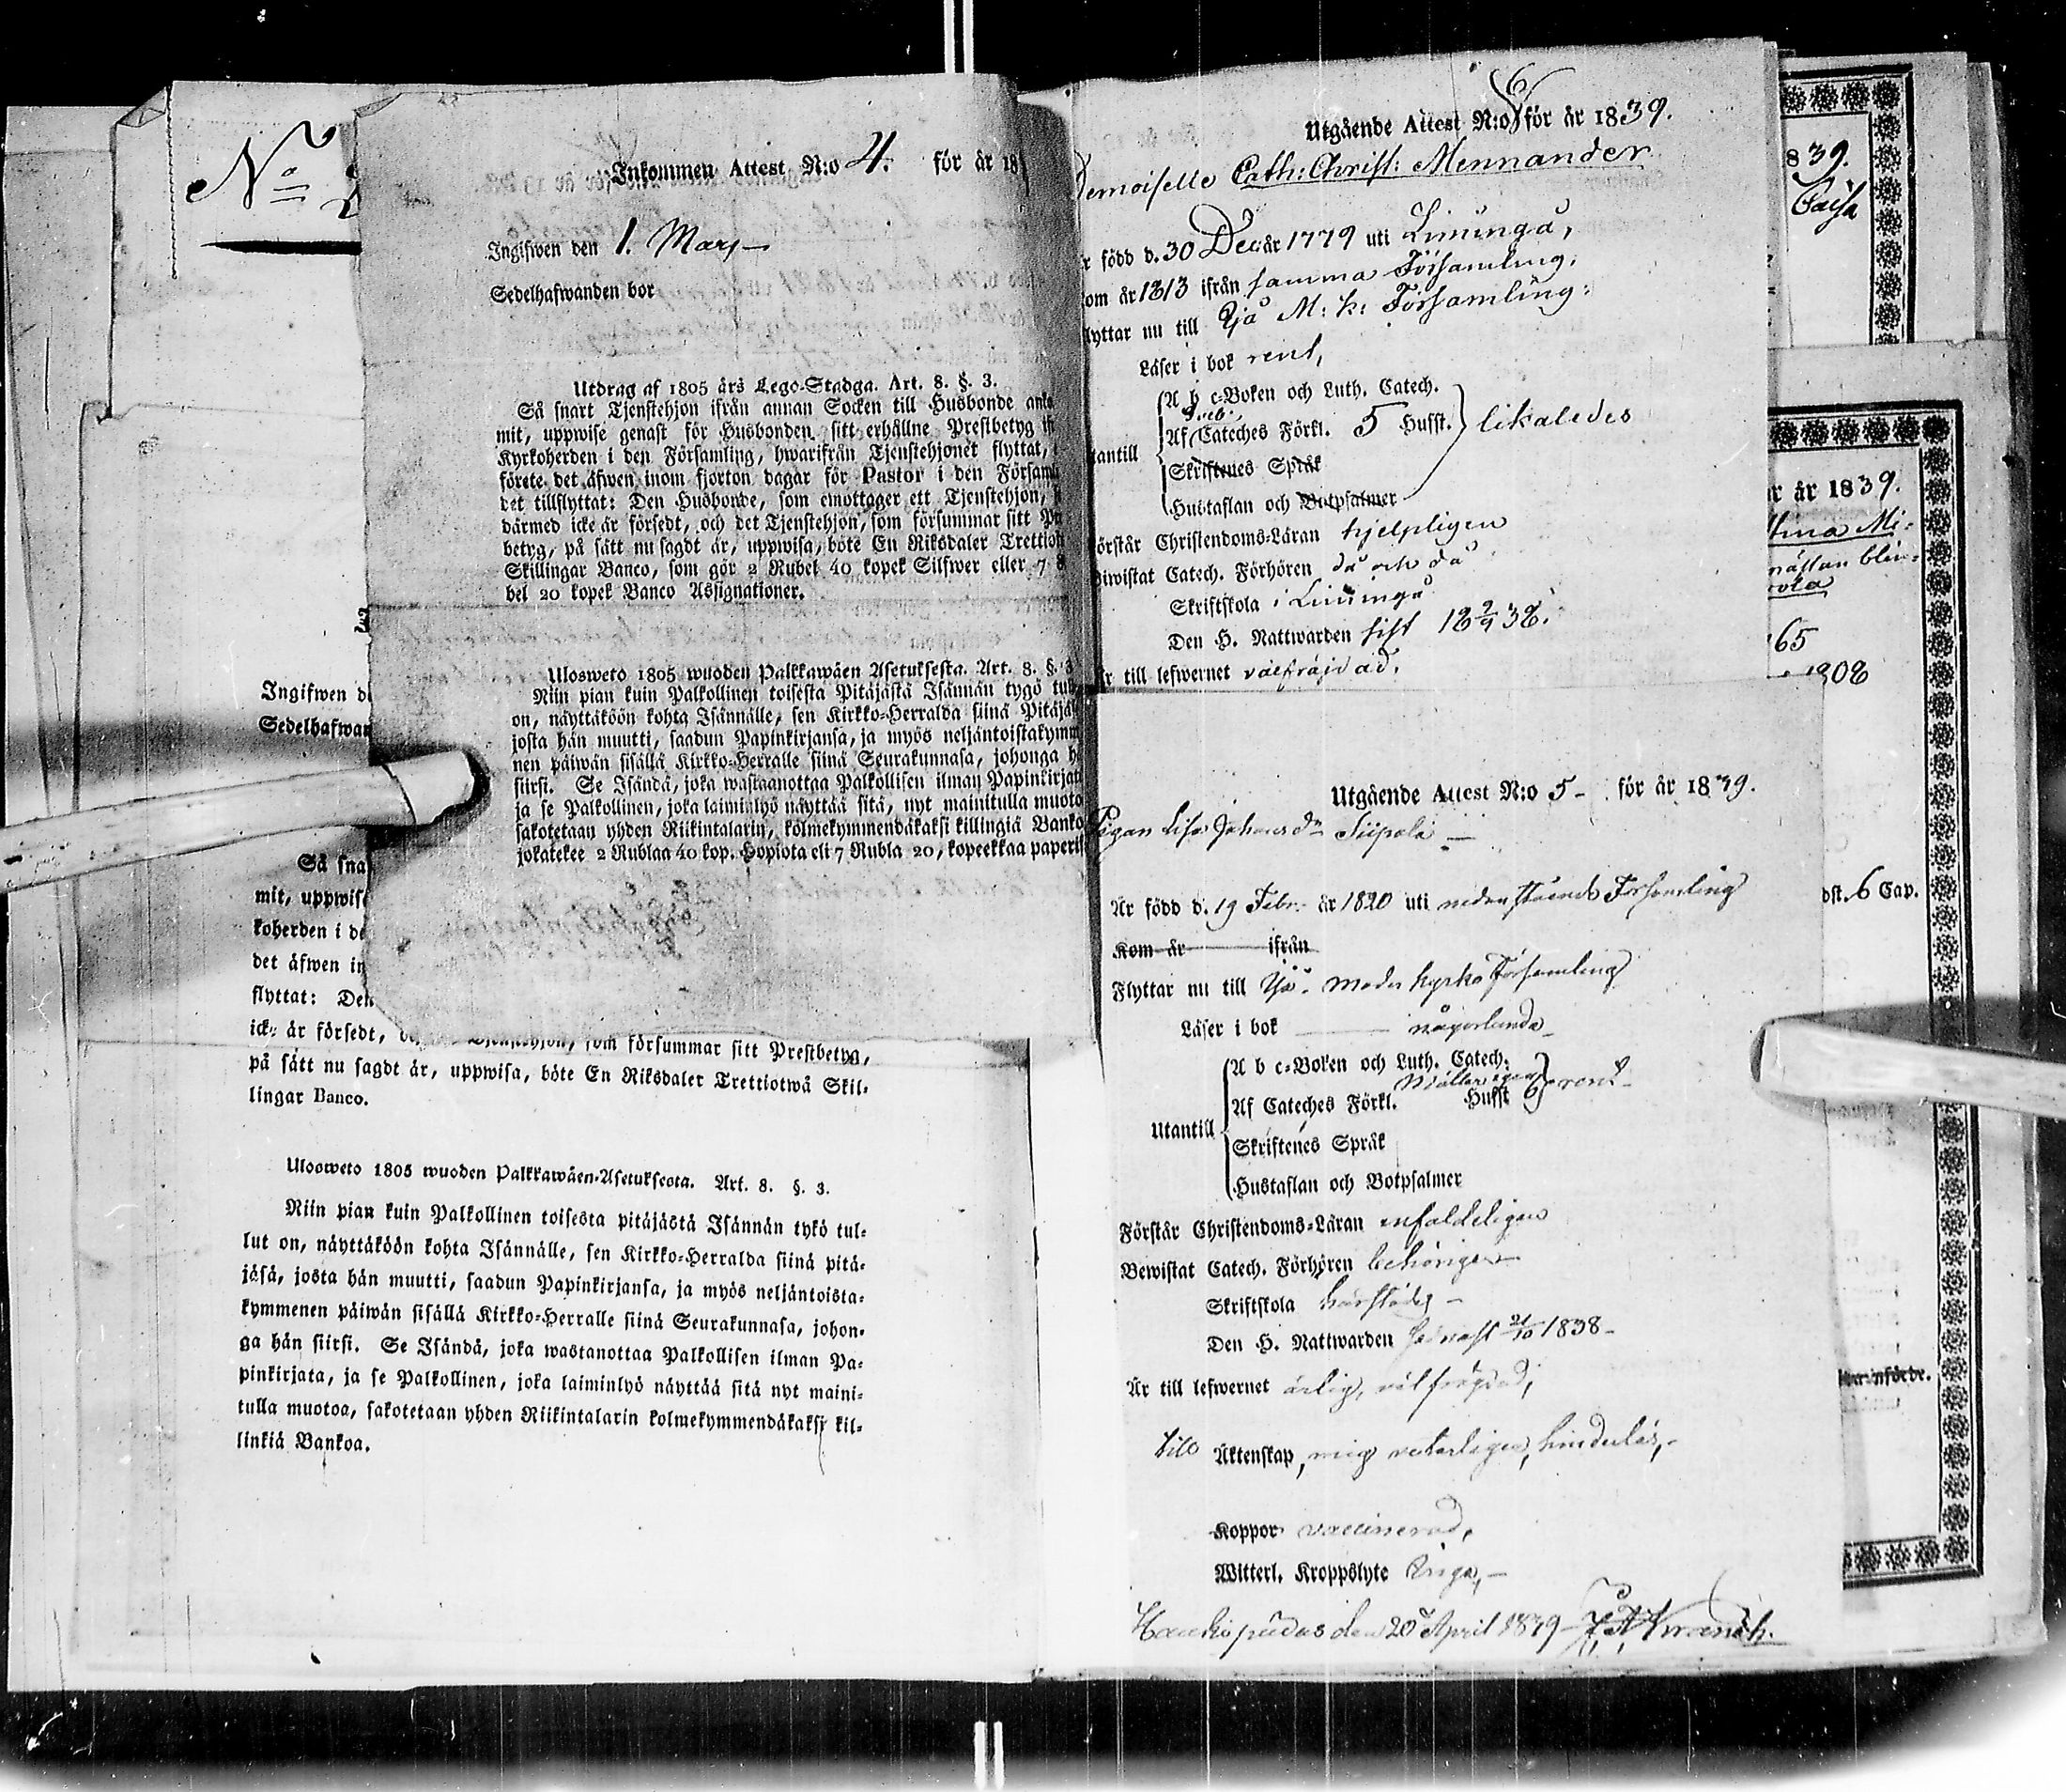 No
Inkommen Attest N:o 4. för år 18
Ingifwen den 1. Mars
Sedelhafwanden bor
Utdrag af 1805 års Lego-Stadga. Art. 8. §. 3.
Så snart Tjenstehjon ifrån annan Socken till Husbonde
mit, uppwise genast för Husbonden sitt erhållne Prestbetyg
Kyrkoherden i den Församling, hwarifrån Tjenstehjonet flyttat,
förete det äfwen inom fjorton dagar för Pastor i den
det tillflyttat: Den Husbonde, som emottager ett Tjenstehjon,
därmed icke är försedt, och det Tjenstehjon, som försummar sitt
betyg, på sätt nu sagdt är, uppwisa, böte En Riksdaler
Skillingar Banco, som gör 2 Rubel 40 kopek Silfwer eller 7
bel 20 kopek Banco Assignationer.
Ulosweto 1805 wuoden Palkkawäen Asetuksesta. Art. 8. §. 3
Niin pian kuin Palkollinen toisesta Pitäjästä Isännän tygö
on, näyttäköön kohta Isännälle, sen Kirkko-Herralda siinä
josta hän muutti, saadun Papinkirjansa, ja myös
nen päiwän sisällä Kirkko-Herralle siinä Seurakunnasa, johonga
siirsi. Se Isändä, joka wastaanottaa Palkollisen ilman
ja se Palkollinen, joka laiminlyö näyttää sitä, nyt mainitulla
sakotetaan yhden Riikintalarin, kolmekymmendäkaksi killingiä
jokatekee 2 Rublaa 40 kop. Hopiota eli 7 Rubla 20, kopeekkaa
Ingifwen
Så
mit,
koherden i
det äfwen
flyttat:
är försedt, som försummar sitt Prestbetyg,
på sätt nu sagdt är, uppwisa, böte En Riksdaler Trettiotwå Skil-
lingar Banco.
Ulosweto 1805 wuoden Palkkawäen-Asetuksesta. Art. 8. §. 3.
Niin pian kuin Palkollinen toisesta pitäjästä Isännän tykö tul-
lut on, näyttäköön kohta Isännälle, sen Kirkko-Herralda siinä pitä-
jäsä, josta hän muutti, saadun Papinkirjansa, ja myös neljäntoista-
kymmenen päiwän sisällä Kirkko-Herralle siinä Seurakunnasa, johon-
ga hän siirsi. Se Isändä, joka wastanottaa Palkollisen ilman Pa-
pinkirjata, ja se Palkollinen, joka laiminlyö näyttää sitä nyt maini-
tulla muotoa, sakotetaan yhden Riikintalarin kolmekymmendäkaksi kil-
linkiä Bankoa.
Utgående Attest N:o 6 för år 1839.
Demoiselle Cath: Christ: Mennander
född d. 30 Dec år 1779 uti Limingå,
om år 1813 ifrån samma Församling.
flyttar nu till Ijå M: k: Församling:
Läser i bok rent,
A b c-Boken och Luth. Catech.
Af Cateches Förkl. 5 Husst. likaledes
Skriftenes Språk
Hustaflan och Botpsalmer
örstår Christendoms-Läran hjelpligen
Catech. Förhören då och då
Skriftskola i Limingå
Den H. Nattwarden sist 18 2/9 38.
till lefwernet välfräjdad.
Utgående Attest N:o 5 för år 1839.
Pigan Lisa Johansdr Siipola
Är född d. 19 Febr. år 1820 uti nedanstående Församling
Kom år ifrån
Flyttar nu till Ijå moderkyrko Församling
Läser i bok någorlunda
Utantill
A b c-Boken och Luth. Catech.
Af Cateches Förkl. Husst
Skriftenes Språk
Hustaflan och Botpsalmer
Förstår Christendoms-Läran enfaldeligen
Bewistat Catech. Förhören behörigen
Skriftskola härstädes
Den H. Nattwarden 21/10 1838
Är till lefwernet ärlig, välfrägdad,
till Äktenskap, mig veterligen, hinderlös,
Koppor vaccinerad,
Witterl. Kroppslyte Inga,
Haukipudas den 20 April 1839
839.
Caisa
år 1839.
65
1808
6 Cap.